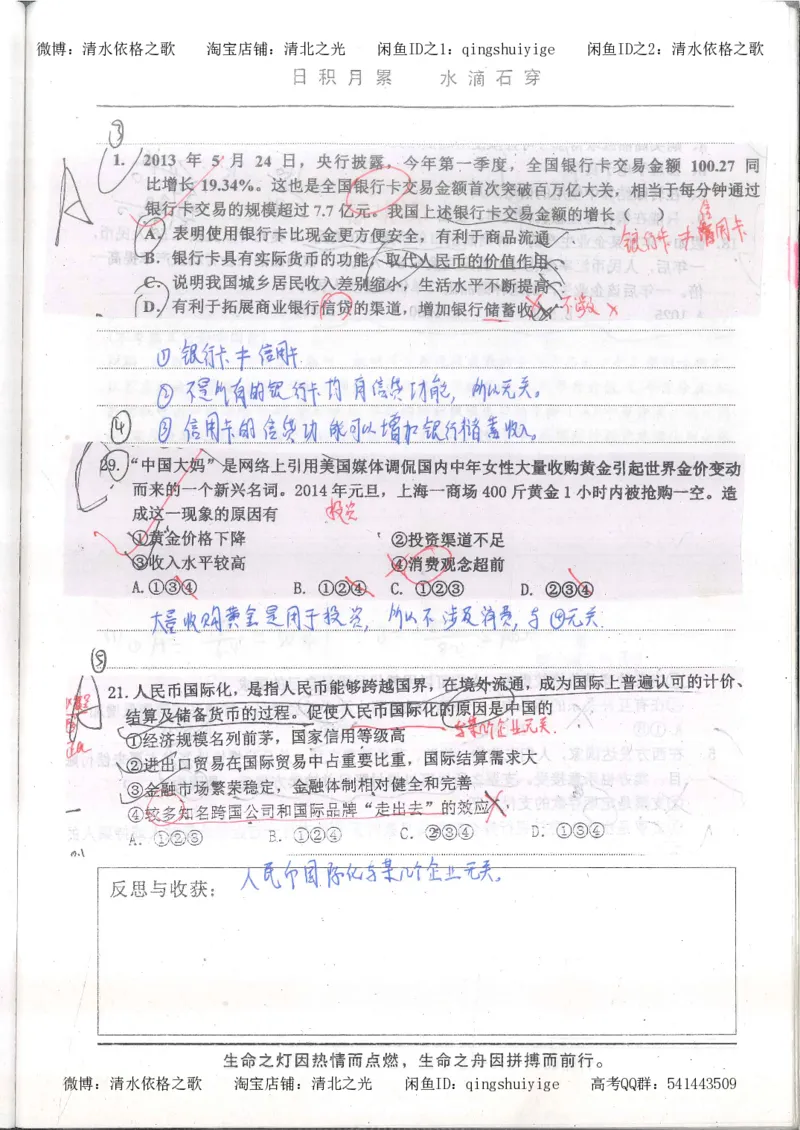 微博：清水依格之歌 淘宝店铺：清北之光 闲鱼ID之1：qingshuiyige 闲鱼ID之2：清水依格之歌
日积月累 水滴石穿
③
1. 2013 年 5 月 24 日，央行披露，今年第一季度，全国银行卡交易金额 100.27 同
比增长 19.34%。这也是全国银行卡交易金额首次突破百万亿大关，相当于每分钟通过
银行卡交易的规模超过 7.7 亿元。我国上述银行卡交易金额的增长
A. 表明使用银行卡比现金更方便安全，有利于商品流通
银行卡≠信用卡
B. 银行卡具有实际货币的功能，取代人民币的价值作用
C. 说明我国城乡居民收入差别缩小，生活水平不断提高
D. 有利于拓展商业银行信贷的渠道，增加银行储蓄收入
① 银行卡≠信用卡
② 不是所有的银行卡均有信贷功能，所以无关。
③ 信用卡的信贷功能可以增加银行储蓄收入。
④
29. “中国大妈”是网络上引用美国媒体调侃国内中年女性大量收购黄金引起世界金价变动
而来的一个新兴名词。2014 年元旦，上海一商场 400 斤黄金 1 小时内被抢购一空。造
成这一现象的原因有
投资
①黄金价格下降 ②投资渠道不足
③收入水平较高 ④消费观念超前
A.①③④ B. ①②④ C. ①②③ D. ②③④
大量收购黄金是用于投资，所以不涉及消费，与④无关
⑤
21. 人民币国际化，是指人民币能够跨越国界，在境外流通，成为国际上普遍认可的计价、
结算及储备货币的过程。促使人民币国际化的原因是中国的
与某个企业无关
①经济规模名列前茅，国家信用等级高
②进出口贸易在国际贸易中占重要比重，国际结算需求大
③金融市场繁荣稳定，金融体制相对健全和完善
④较多知名跨国公司和国际品牌“走出去”的效应
A. ①②③ B. ①②④ C. ②③④ D. ①③④
反思与收获：人民币国际化与某几个企业无关。
生命之灯因热情而点燃，生命之舟因拼搏而前行。
微博：清水依格之歌 淘宝店铺：清北之光 闲鱼ID：qingshuiyige 高考QQ群：541443509